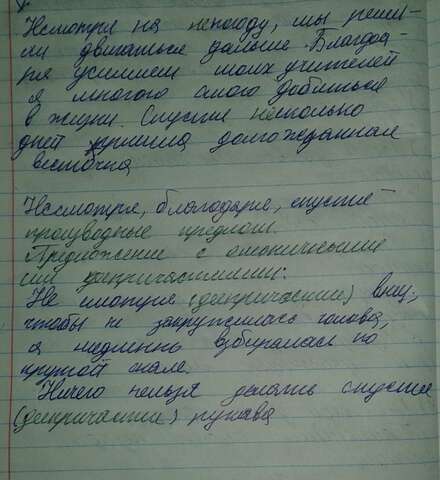 Несмотря на непогоду, мы реши-
ли двигаться дальше. Благода-
ря усилиям моих учителей
я многого смог добиться
в жизни. Спустя несколько
дней пришла долгожданная
весточка
Несмотря, благодаря, спустя
производные предлоги.
Предложение с омонимичными
деепричастиями:
Не смотря (деепричастие) вниз,
чтобы не закружилась голова,
я медленно взбиралась по
крутой скале.
Ничего нельзя делать спустя
(деепричастие) рукава